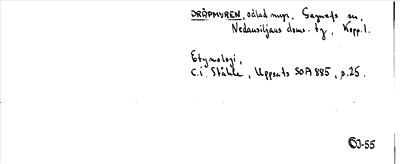 DRÅPMYREN, odlad myr, Gagnefs sn,
Nedansiljans doms. tg, Kopp.l.
Etymologi,
C.i. Ståhle, Uppsats SOA 885, s.25.
ÖJ-55